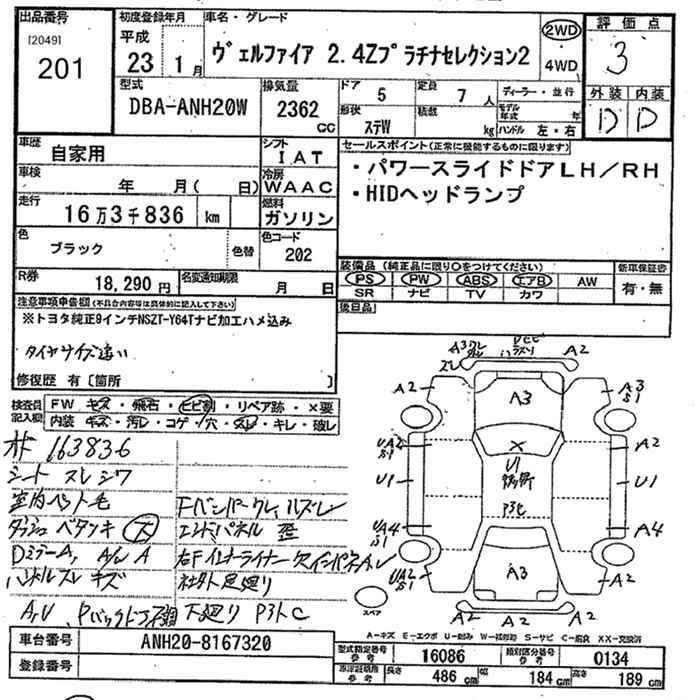 出品番号
[2049]
201
初度登録年月
平成
23 1月
車名・グレード
ヴェルファイア 2.4Zプラチナセレクション2
2WD
・
4WD
評価点
3
外装 内装
D D
型式
DBA-ANH20W
排気量
2362
cc
ドア
5
定員
7 人
ディーラー・並行
形状
ステW
積載
kg
モデル年式 年
ハンドル 左・右
車歴
自家用
シフト
IAT
車検
年 月( 日)
冷房
WAAC
走行
16万3千836 km
燃料
ガソリン
色
ブラック
色替
色コード
202
R券
18,290 円
名変通知期限
月 日
セールスポイント(正常に機能するものに限ります)
・パワースライドドアLH/RH
・HIDヘッドランプ
装備品(純正品に限り○をつけてください)
PS PW ABS エアB AW
SR ナビ TV カワ
新車保証書
有・無
後日品
注意事項申告欄(不具合内容等は具体的に記入して下さい)
※トヨタ純正9インチNSZT-Y64Tナビ加工ハメ込み
タイヤサイズ違い
修復歴 有〔箇所 〕
検査員記入欄
FW キズ・飛石・ヒビ割・リペア跡・×要
内装 キズ・汚レ・コゲ・穴・スレ・キレ・破レ
163836
シート スレ シワ
室内ペット毛
ダッシュ ベタツキ 大
Dミラー A, A/W A
ハンドルスレ キズ
Fバンパー ワレ, ハズレ
エンドパネル 歪
社外足廻り
下廻り
A3
A2
A2
A3
A3
S1
X
U1
UA2
S1
A2
U1
U1
UA4
S1
A4
UA2
S1
A3
A2
A2
A2
スペア
A-キズ E-エクボ U-凹み W-補修跡 S-サビ C-腐食 XX-交換済
車台番号
ANH20-8167320
登録番号
型式指定番号 参考
16086
類別区分番号 参考
0134
車両諸元参考
長さ
486 cm
幅
184 cm
高さ
189 cm